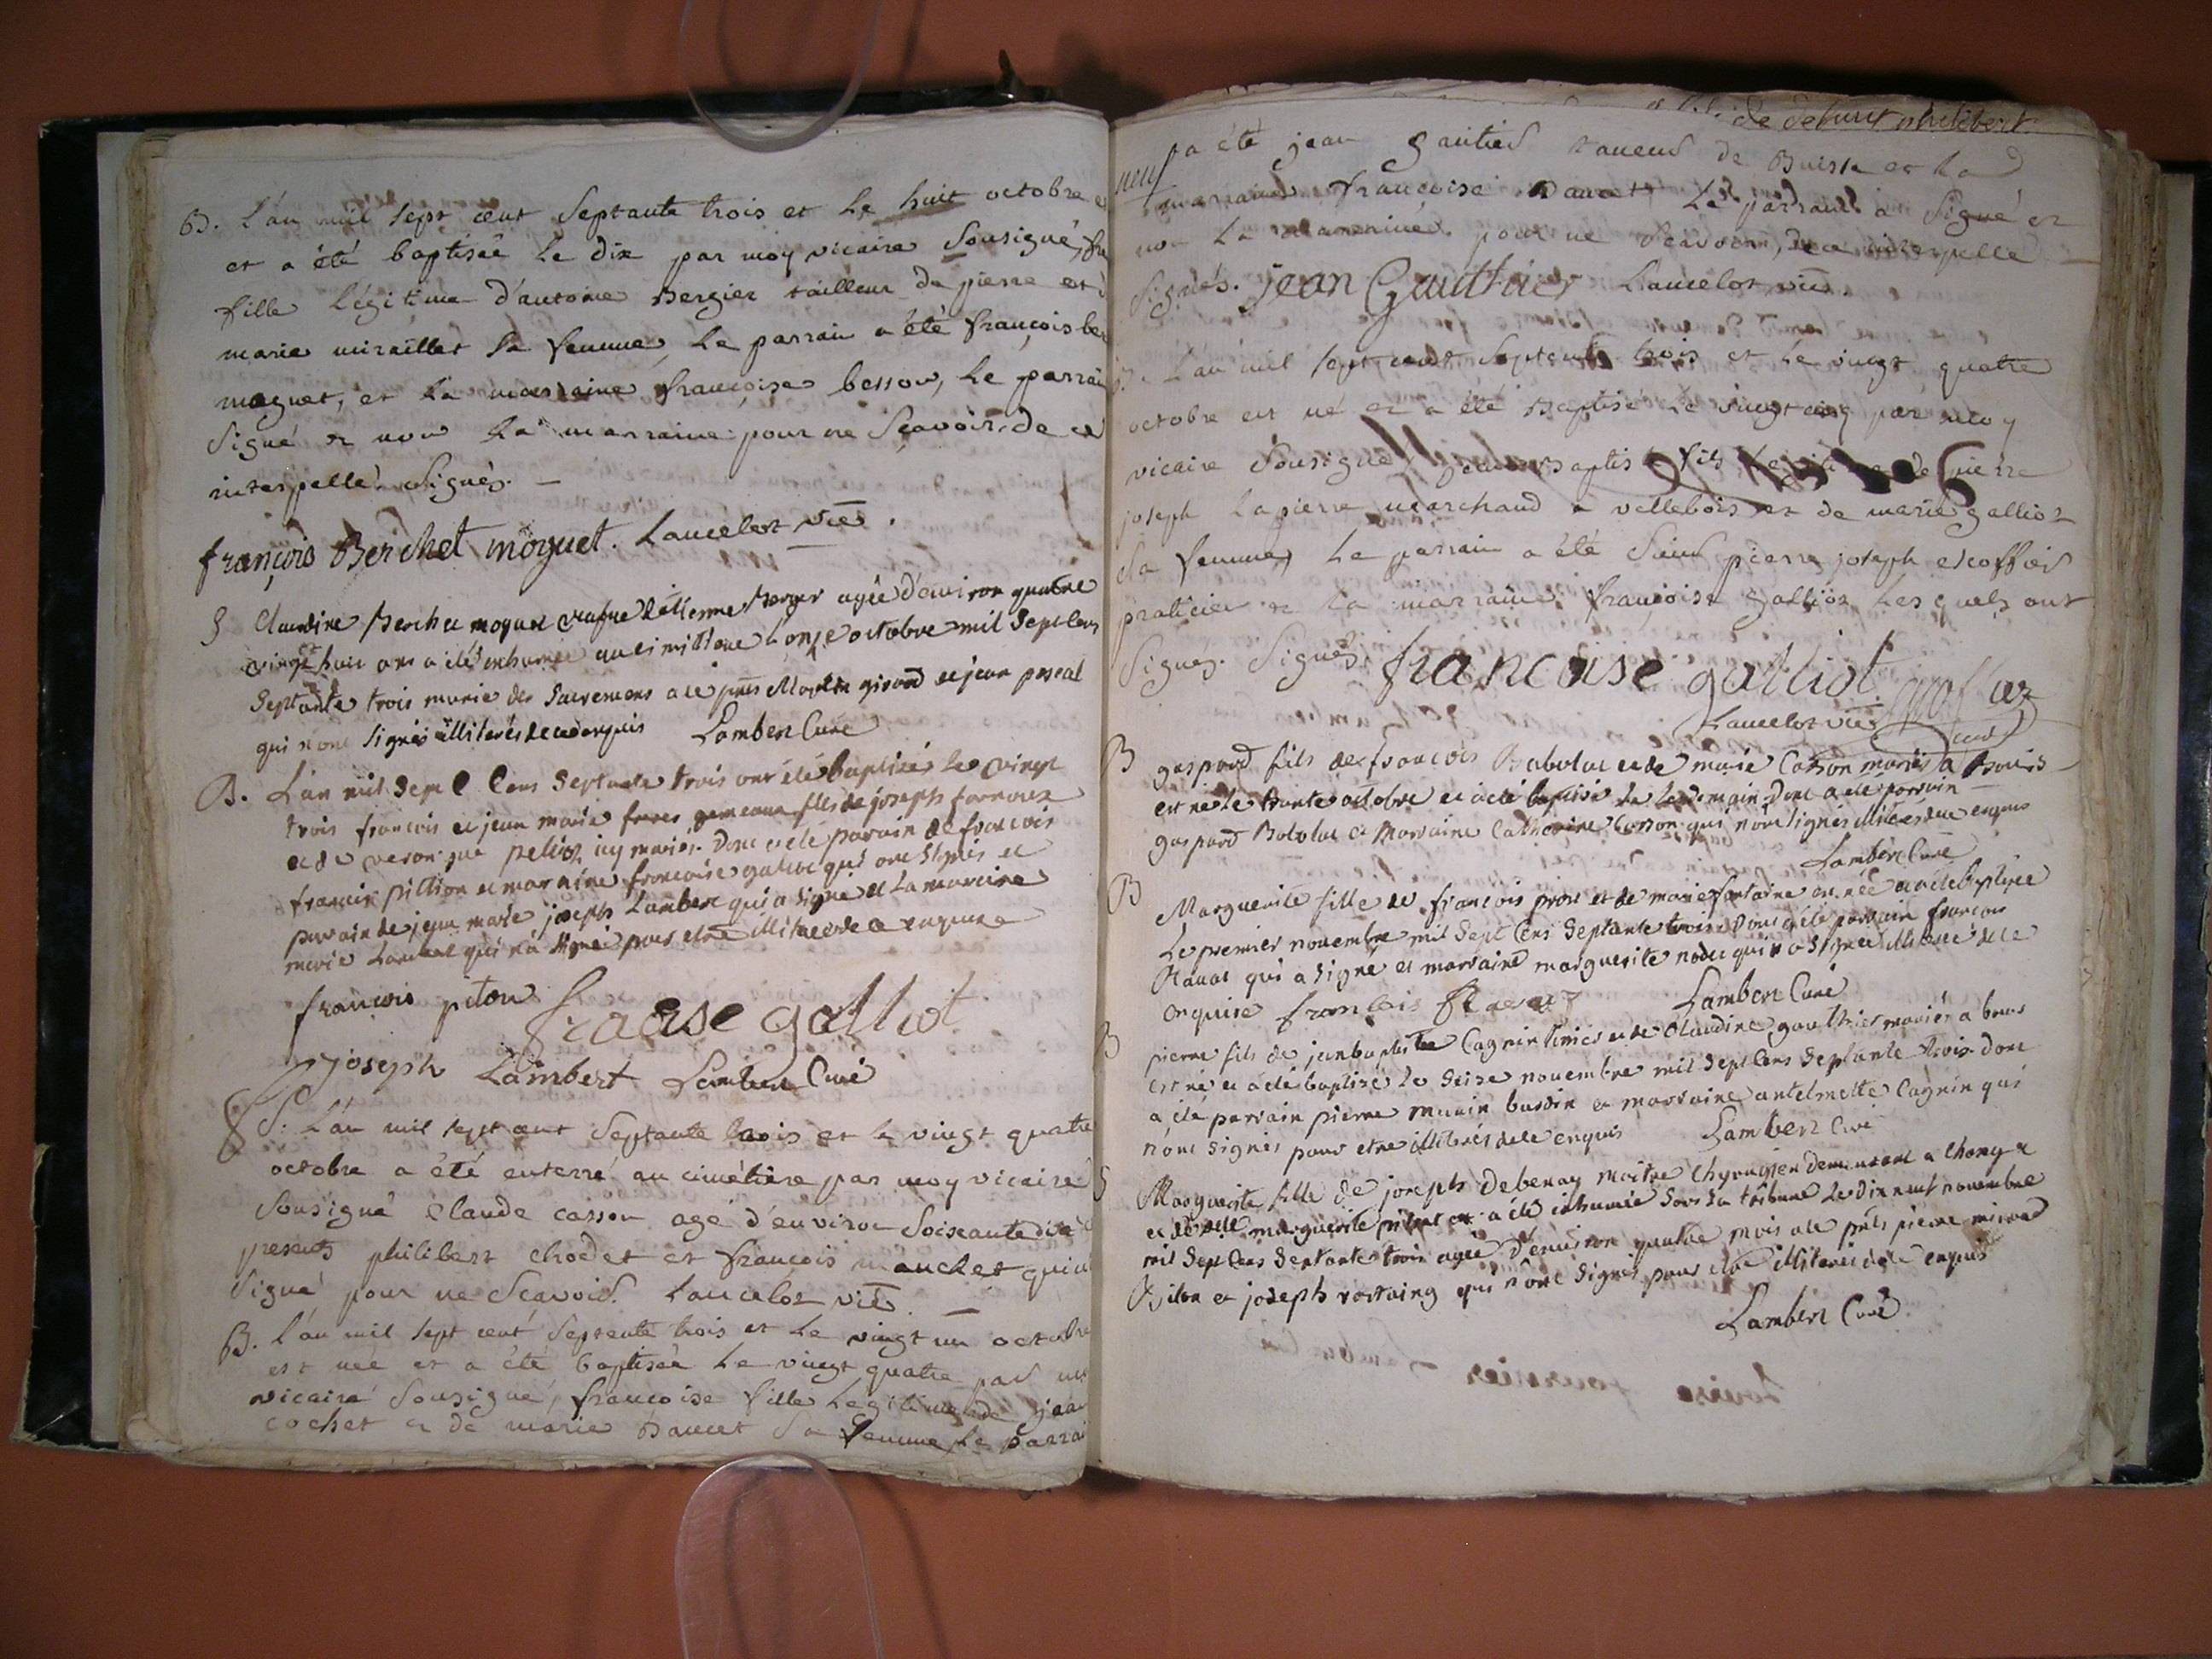 B. L'an mil sept cent septante trois et le huit octobre
et a été baptisée le dix par moy vicaire sousigné,
fille légitime d'antoine Bergier tailleur de pierre et
marie miraillet sa femme, le parrain a été françois
moguet, et la marraine françoise besson, le parrain
signé et non la marraine pour ne sçavoir, de ce
interpellé. Signés.
françois Berchet moguet. Lancelot vic̄e.
S Claudine Berchet moguet veufve d'étienne Berger agée d'environ quatre
vingt huit ans a été inhumée au cimittiere l'onze octobre mil sept cens
septante trois munie des sacremens a ce pn̄ts girod et jean pascal
qui n'ont signés illiterés de ce enquis Lambert Curé
B. L'an mil sept Cens septante trois ont été baptisés le vingt
trois francois et jean marie freres gemeaux fils de joseph
et de veronique pelliot icy mariés. Dont a été parrain de francois
francois pittion et marraine francoise galliot qui ont signés et
parrain de jean marie joseph Lambert qui a signé et la marraine
marie qui n'a signé pour etre illiterée de ce enquise
francois piton fracise galliot
joseph Lambert Lambert Curé
S. L'an mil sept cent septante trois et le vingt quatre
octobre a été enterré au cimétière par moy vicaire
sousigné Claude casson agé d'environ soiseante dix
presents philibert chodet et francois manchet qui
signé pour ne sçavoir. Lancelot vic̄e.
B. L'an mil sept cent septente trois et le vingt un octobre
est née et a été baptisée le vingt quatre par
vicaire sousigné, francoise fille legitime de jean
cochet et de marie Bancet sa femme, le parrain
de defunt philibert
a été jean gautier de Buisse et la
marraine françoise Bancet le parrain a signé et
non la marraine pour ne sçavoir, de ce interpellé
signés. jean Gautthier Lancelot vic̄e.
B. L'an mil sept cent septente trois et le vingt quatre
octobre est né et a été Baptisé le vingt cinq par moy
vicaire sousigné, jean Baptis fils legitime de pierre
joseph Lapierre marchand a villebois et de marie galliot
sa femme, le parrain a été sieur pierre joseph escoffier
praticien et la marraine françoise galliot lesquels ont
signés. Signés. francoise galliot
Lancelot vic̄e
B gaspard fils de francois Babolat et de marie Casson mariés a Bouis
est né le trente octobre et a été baptisé le lendemain dont a été parrain
gaspard Babolat et marraine Catherine Casson qui n'ont signés illiterés de ce enquis
Lambert Curé
B Marguerite fille de francois prost et de marie fontaine est née et a été baptisée
le premier novembre mil sept Cens septante trois. Dont a été parrain francois
Ravat qui a signé et marraine marguerite nodet qui n'a signé illiterée de ce
enquise francois Ravat Lambert Curé
B pierre fils de jean baptiste Cagnin et de Claudine gauthier mariés a bouis
est né et a été baptisé le seize novembre mil sept Cens septante trois. dont
a été parrain pierre bardin et marraine antelmette Cagnin qui
n'ont signés pour etre illiterés de ce enquis Lambert Curé
S Margueritte fille de joseph Debenay maitre Chyrurgien demeurant a
et de marguerite a été inhumée sous la tribune le dix neuf novembre
mil sept Cens septante trois agée d'environ quatre mois a ce pn̄ts pierre
et joseph rostaing qui n'ont signés pour etre illiterés de ce enquis
Lambert Curé